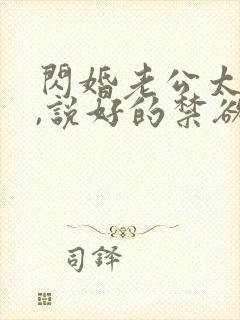 閃婚老公太
,說好的禁欲
司鐸